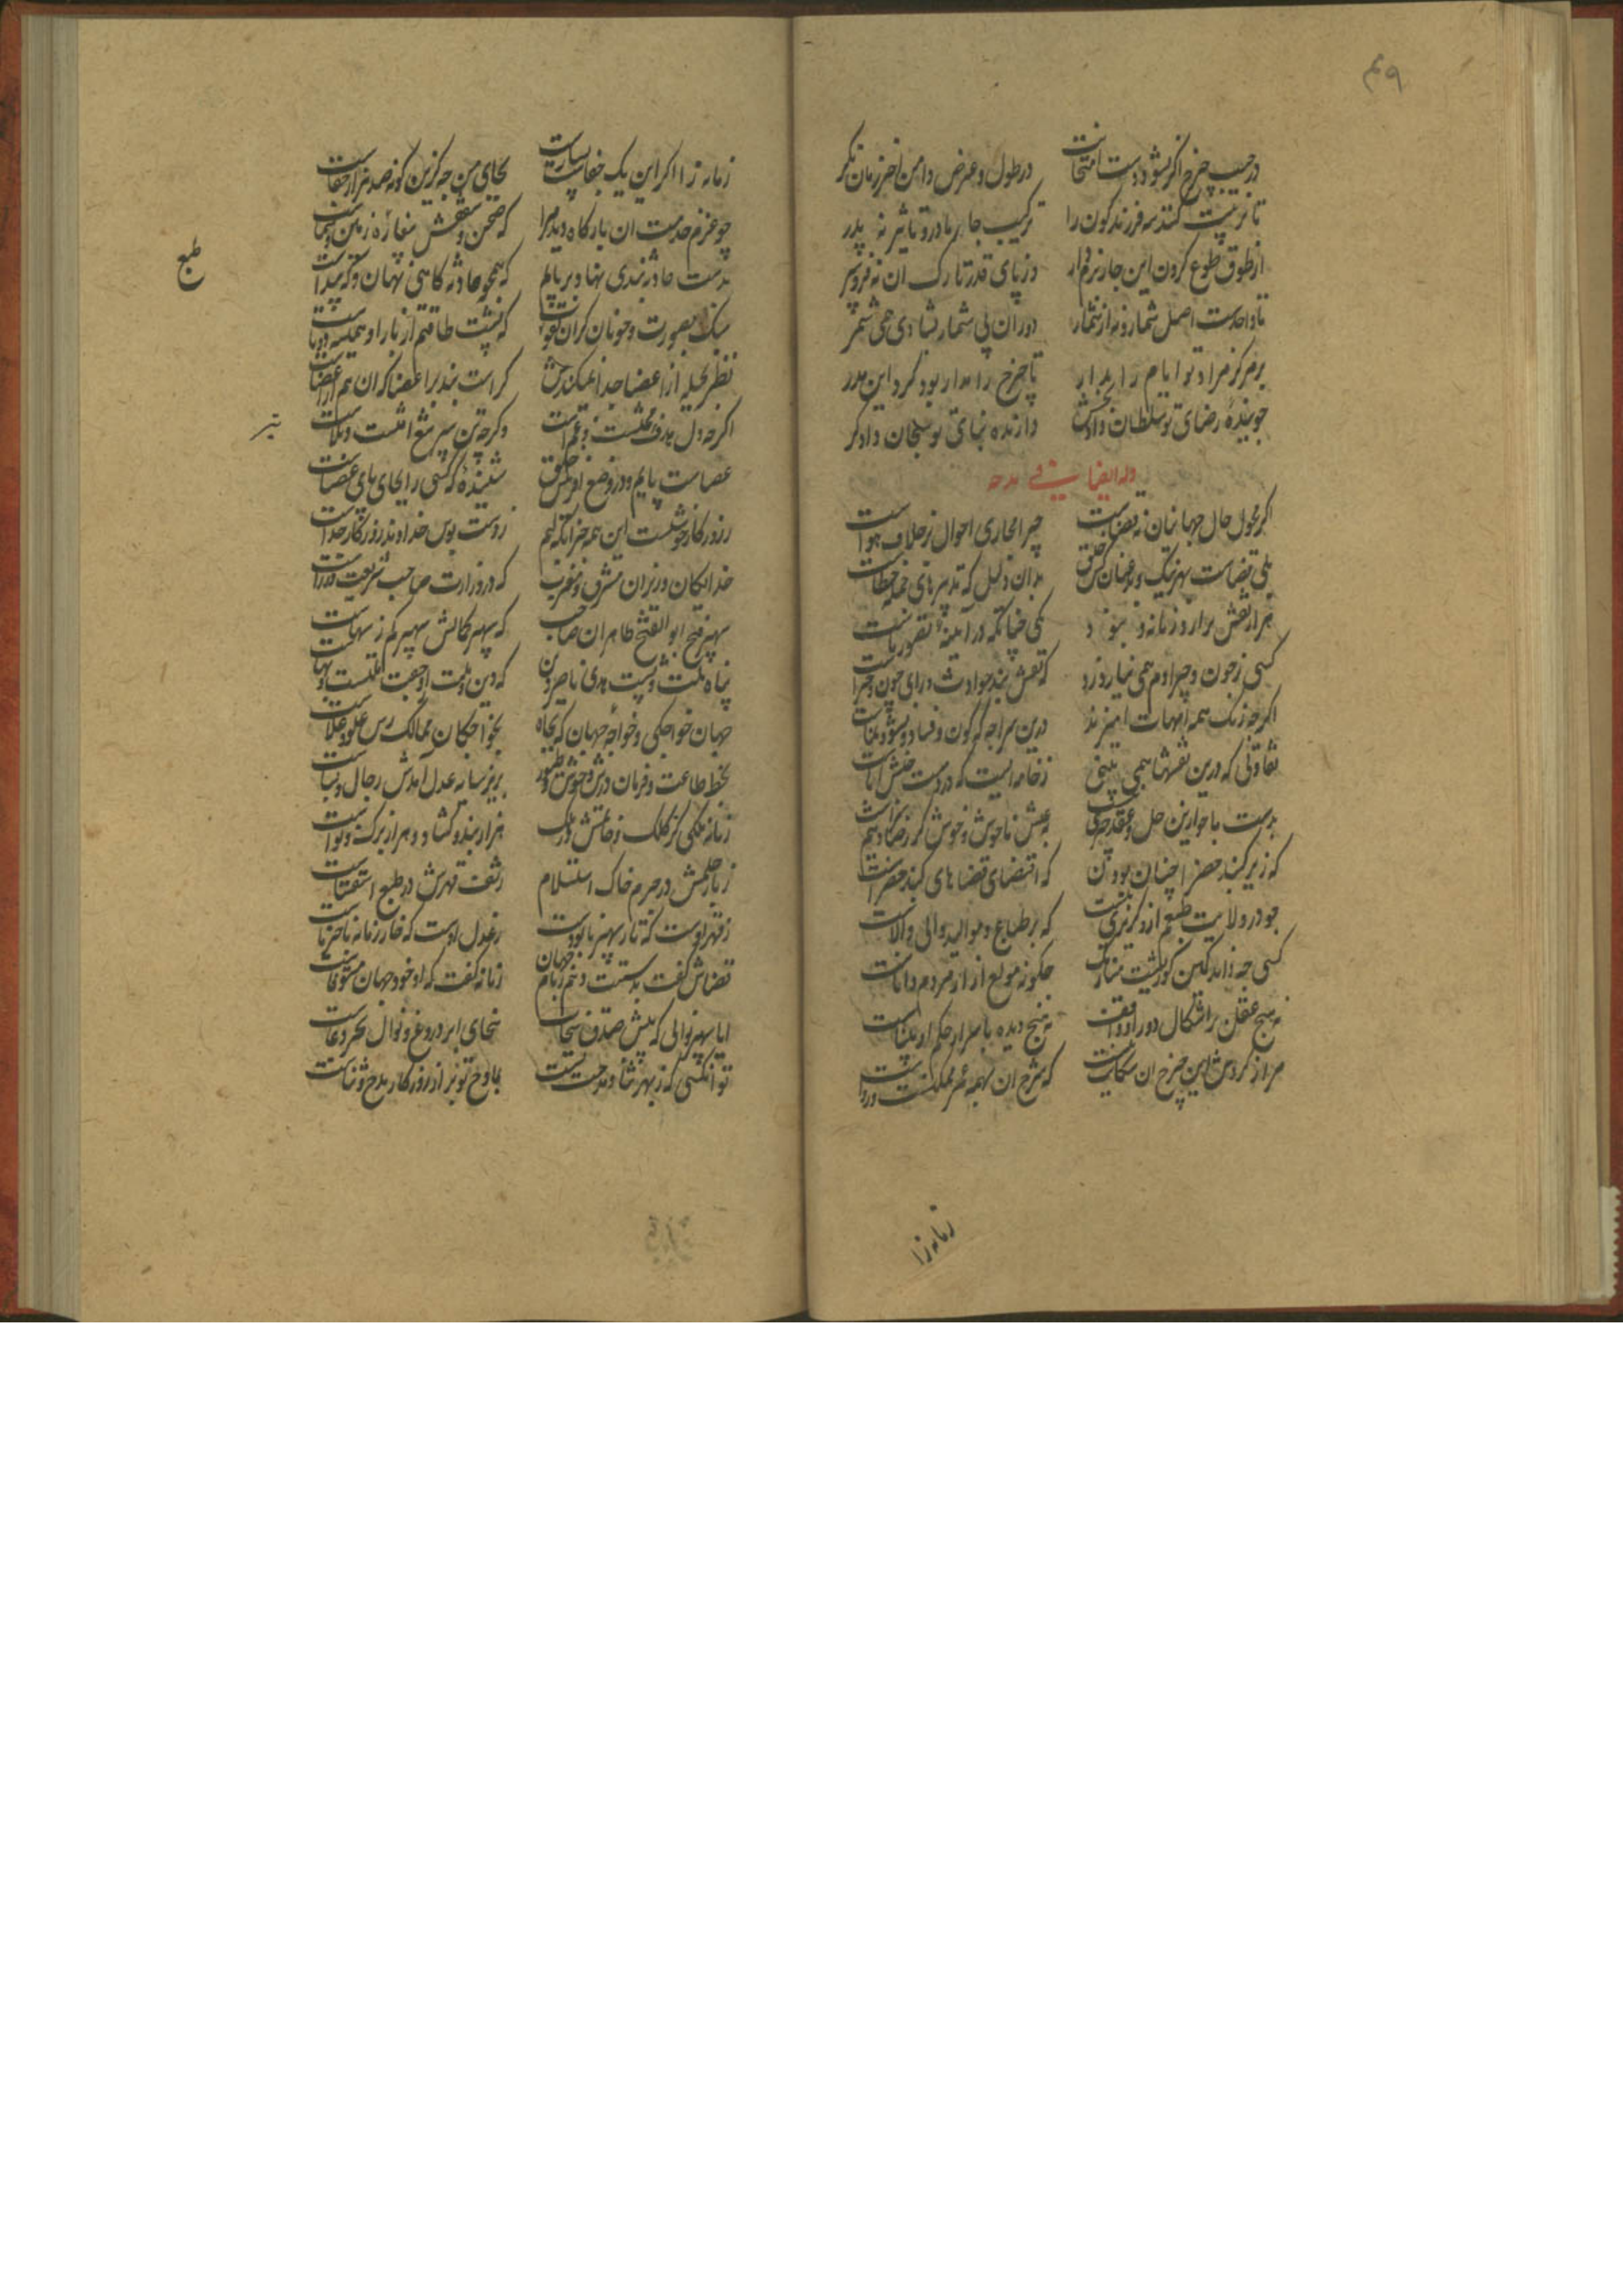 ۴۹
در جیب چرخ اگر بشود دست امتحانت در طول و عرض دامن آخر زمان نگر
تا تربیت کنند سه فرزند کون را ترکیب چار مادر و تاثیر نه پدر
از طوق طوع گردن این چار نرم دار وز پای قدر تارک آن نه فرو سپر
تا واحدست اصل شمار و نه از شمار دوران بی شمار بشادی همی شمر
بر مرکز مراد تو ایام را مدار تا چرخ را مدار بود گرد این مدر
جوینده رضای تو سلطان دادبخش دارنده بنمای تو سبحان دادگر
وله ایضا فی مدحه
اگر محول حال جهانیان نه قضاست چرا مجاری احوال بر خلاف هواست
بلی قضاست بهر نیک و بد عنان کش خلق بدان دلیل که تدبیرهای جمله خطاست
هزار نقش برآرد زمانه و نبود یکی چنانکه در آیینه تصور ماست
کسی ز چون و چرا دم همی نیارد زد که نقش بند حوادث ورای چون و چراست
اگرچه نقش همه امهات می‌بندند درین سراچه که کون و فساد و نشو و نماست
تفاوتی که درین نقشها همی بینی ز خامه ایست که در دست جنبش آباست
بدست ما چو ازین حل و عقد چیزی نیست به عیش ناخوش و خوش گر رضا دهیم رواست
که زیر گنبد خضرا چنان توان بودن که اقتضای قضاهای گنبد خضراست
چو در ولایت طبعیم ازو گزیری نیست که بر طباع و موالید والی والاست
کسی چه داند کین گوژپشت مینارنگ چگونه مولع آزار مردم داناست
نه هیچ عقل بر اشکال دور او واقف نه هیچ دیده بر اسرار حکم او بیناست
مرا ز گردش این چرخ آن شکایت نیست که شرح آن بهمه عمر ممکنست و رواست
زمانه را
زمانه را اگر این یک جفاست بسیارست بجای من چه کزین گونه صد هزار جفاست
چو عزم خدمت آن بارگاه دید مرا که صحن و سقفش بیغاره زمین و سماست
بدست حادثه بندی نهاد بر پایم که همچو حادثه گاهی نهان و گه پیداست
سبک بصورت و چونان گران بقوت که پشت طاقتم از بار او همیشه دوتاست
نظر بحیله از اعضا جدا نمیکندش کراست بند بر اعضا که آن هم از اعضاست
اگرچه دل هدف محنتست و غم است وگرچه تن سپر تیغ آفتست و بلاست
عصاست پایم و در وضع آفرینش خلق شنیده که کسی را بجای پای عصاست
ز روزگار خوشست این همه جز آنکه لبم ز دست بوس خداوند روزگار جداست
خدایگان وزیران مشرق و مغرب که در وزارت صاحب شریعت وزراست
سپهر فتح ابو الفتح طاهر آن صاحب که بر سپهر کمالش سپهر کم ز سهاست
پناه ملت و پشت هدی ناصر دین که دین و ملت ازو جفت نصرتست و بهاست
جهان خواجگی و خواجه جهان که بجاه بخواجگان ممالک برش علو و علاست
بخط طاعت و فرمان درش وحوش و طیور بزیر سایه عدل آمدش رجال و نساست
زمانه ملکی کز کلک و خاتمش در ملک هزار بند و گشاد و هزار برگ و نواست
ز بار حلمش در جرم خاک استسلام ز تف قهرش در طبع آب استسقاست
ز قهر اوست که تار سپهر با پودست ز عدل اوست که خار زمانه با خرماست
قضاش گفت بدستت دهم زمام جهان زمانه گفت که او خود جهان مستوفاست
ایا سپهر نوالی که پیش صدق سخات سخای ابر دروغ و نوال بحر دغاست
تو آنکسی که ز بهر ثنا و مدحت تست بماوح تو بر از روزگار مدح و ثناست
تیر
طبع